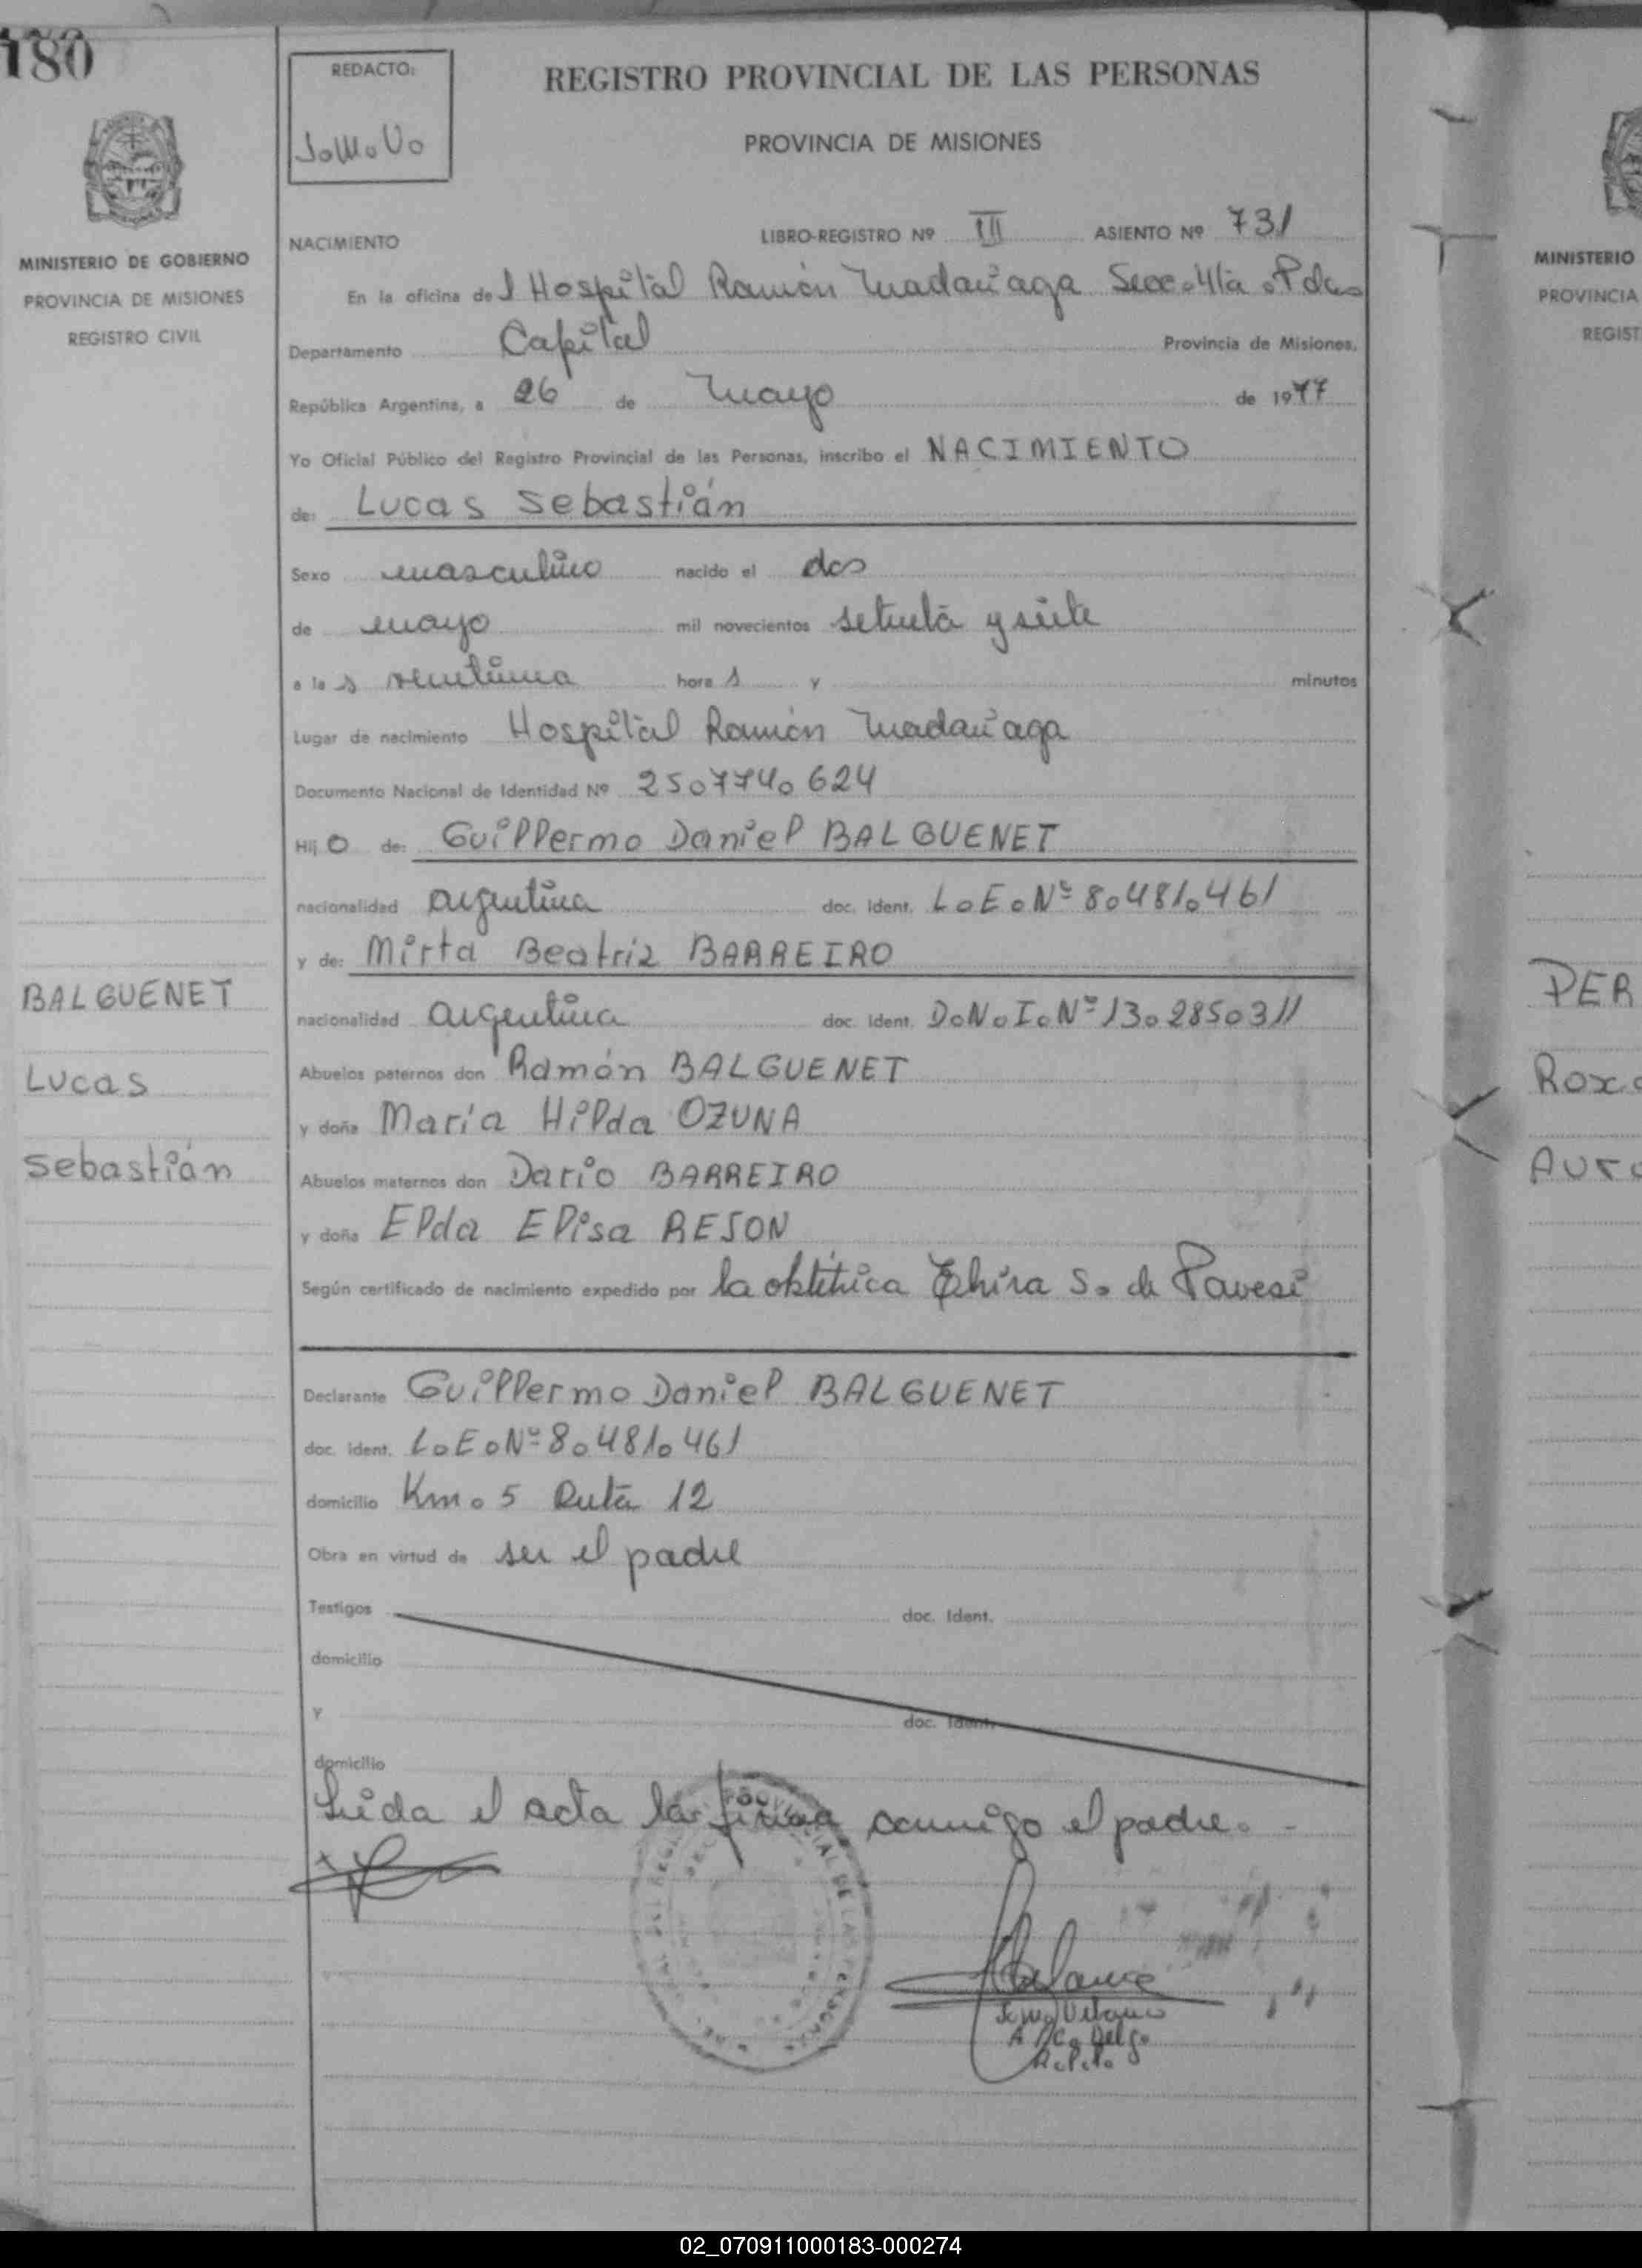 180
REDACTO:
J.M.V.
REGISTRO PROVINCIAL DE LAS PERSONAS
PROVINCIA DE MISIONES
MINISTERIO DE GOBIERNO
PROVINCIA DE MISIONES
REGISTRO CIVIL
NACIMIENTO
LIBRO-REGISTRO Nº III ASIENTO Nº 731
En la oficina del Hospital Ramón Madariaga Secc. 4ta. Pdas
Departamento Capital Provincia de Misiones,
República Argentina, a 26 de mayo de 1977
Yo Oficial Público del Registro Provincial de las Personas, inscribo el NACIMIENTO
de: Lucas Sebastián
Sexo masculino nacido el dos
de mayo mil novecientos setenta y siete
a las veintiuna horas y minutos
Lugar de nacimiento Hospital Ramón Madariaga
Documento Nacional de Identidad Nº 25.774.624
Hijo de: Guillermo Daniel BALGUENET
nacionalidad argentina doc. Ident. L.E.Nº 8.481.461
y de: Mirta Beatriz BARREIRO
nacionalidad argentina doc. Ident. D.N.I.Nº 13.285.311
Abuelos paternos don Ramón BALGUENET
y doña María Hilda OZUNA
Abuelos maternos don Darío BARREIRO
y doña Elda Elisa RESON
Según certificado de nacimiento expedido por la obstétrica S. de Pavesi
Declarante Guillermo Daniel BALGUENET
doc. Ident. L.E.Nº 8.481.461
domicilio Km. 5 Ruta 12
Obra en virtud de ser el padre
Testigos doc. Ident.
domicilio
y doc. Ident.
domicilio
Leida el acta la firma conmigo el padre. -
BALGUENET
Lucas
Sebastián
MINISTERIO
PROVINCIA
REGIST
PER
Rox
02_070911000183-000274